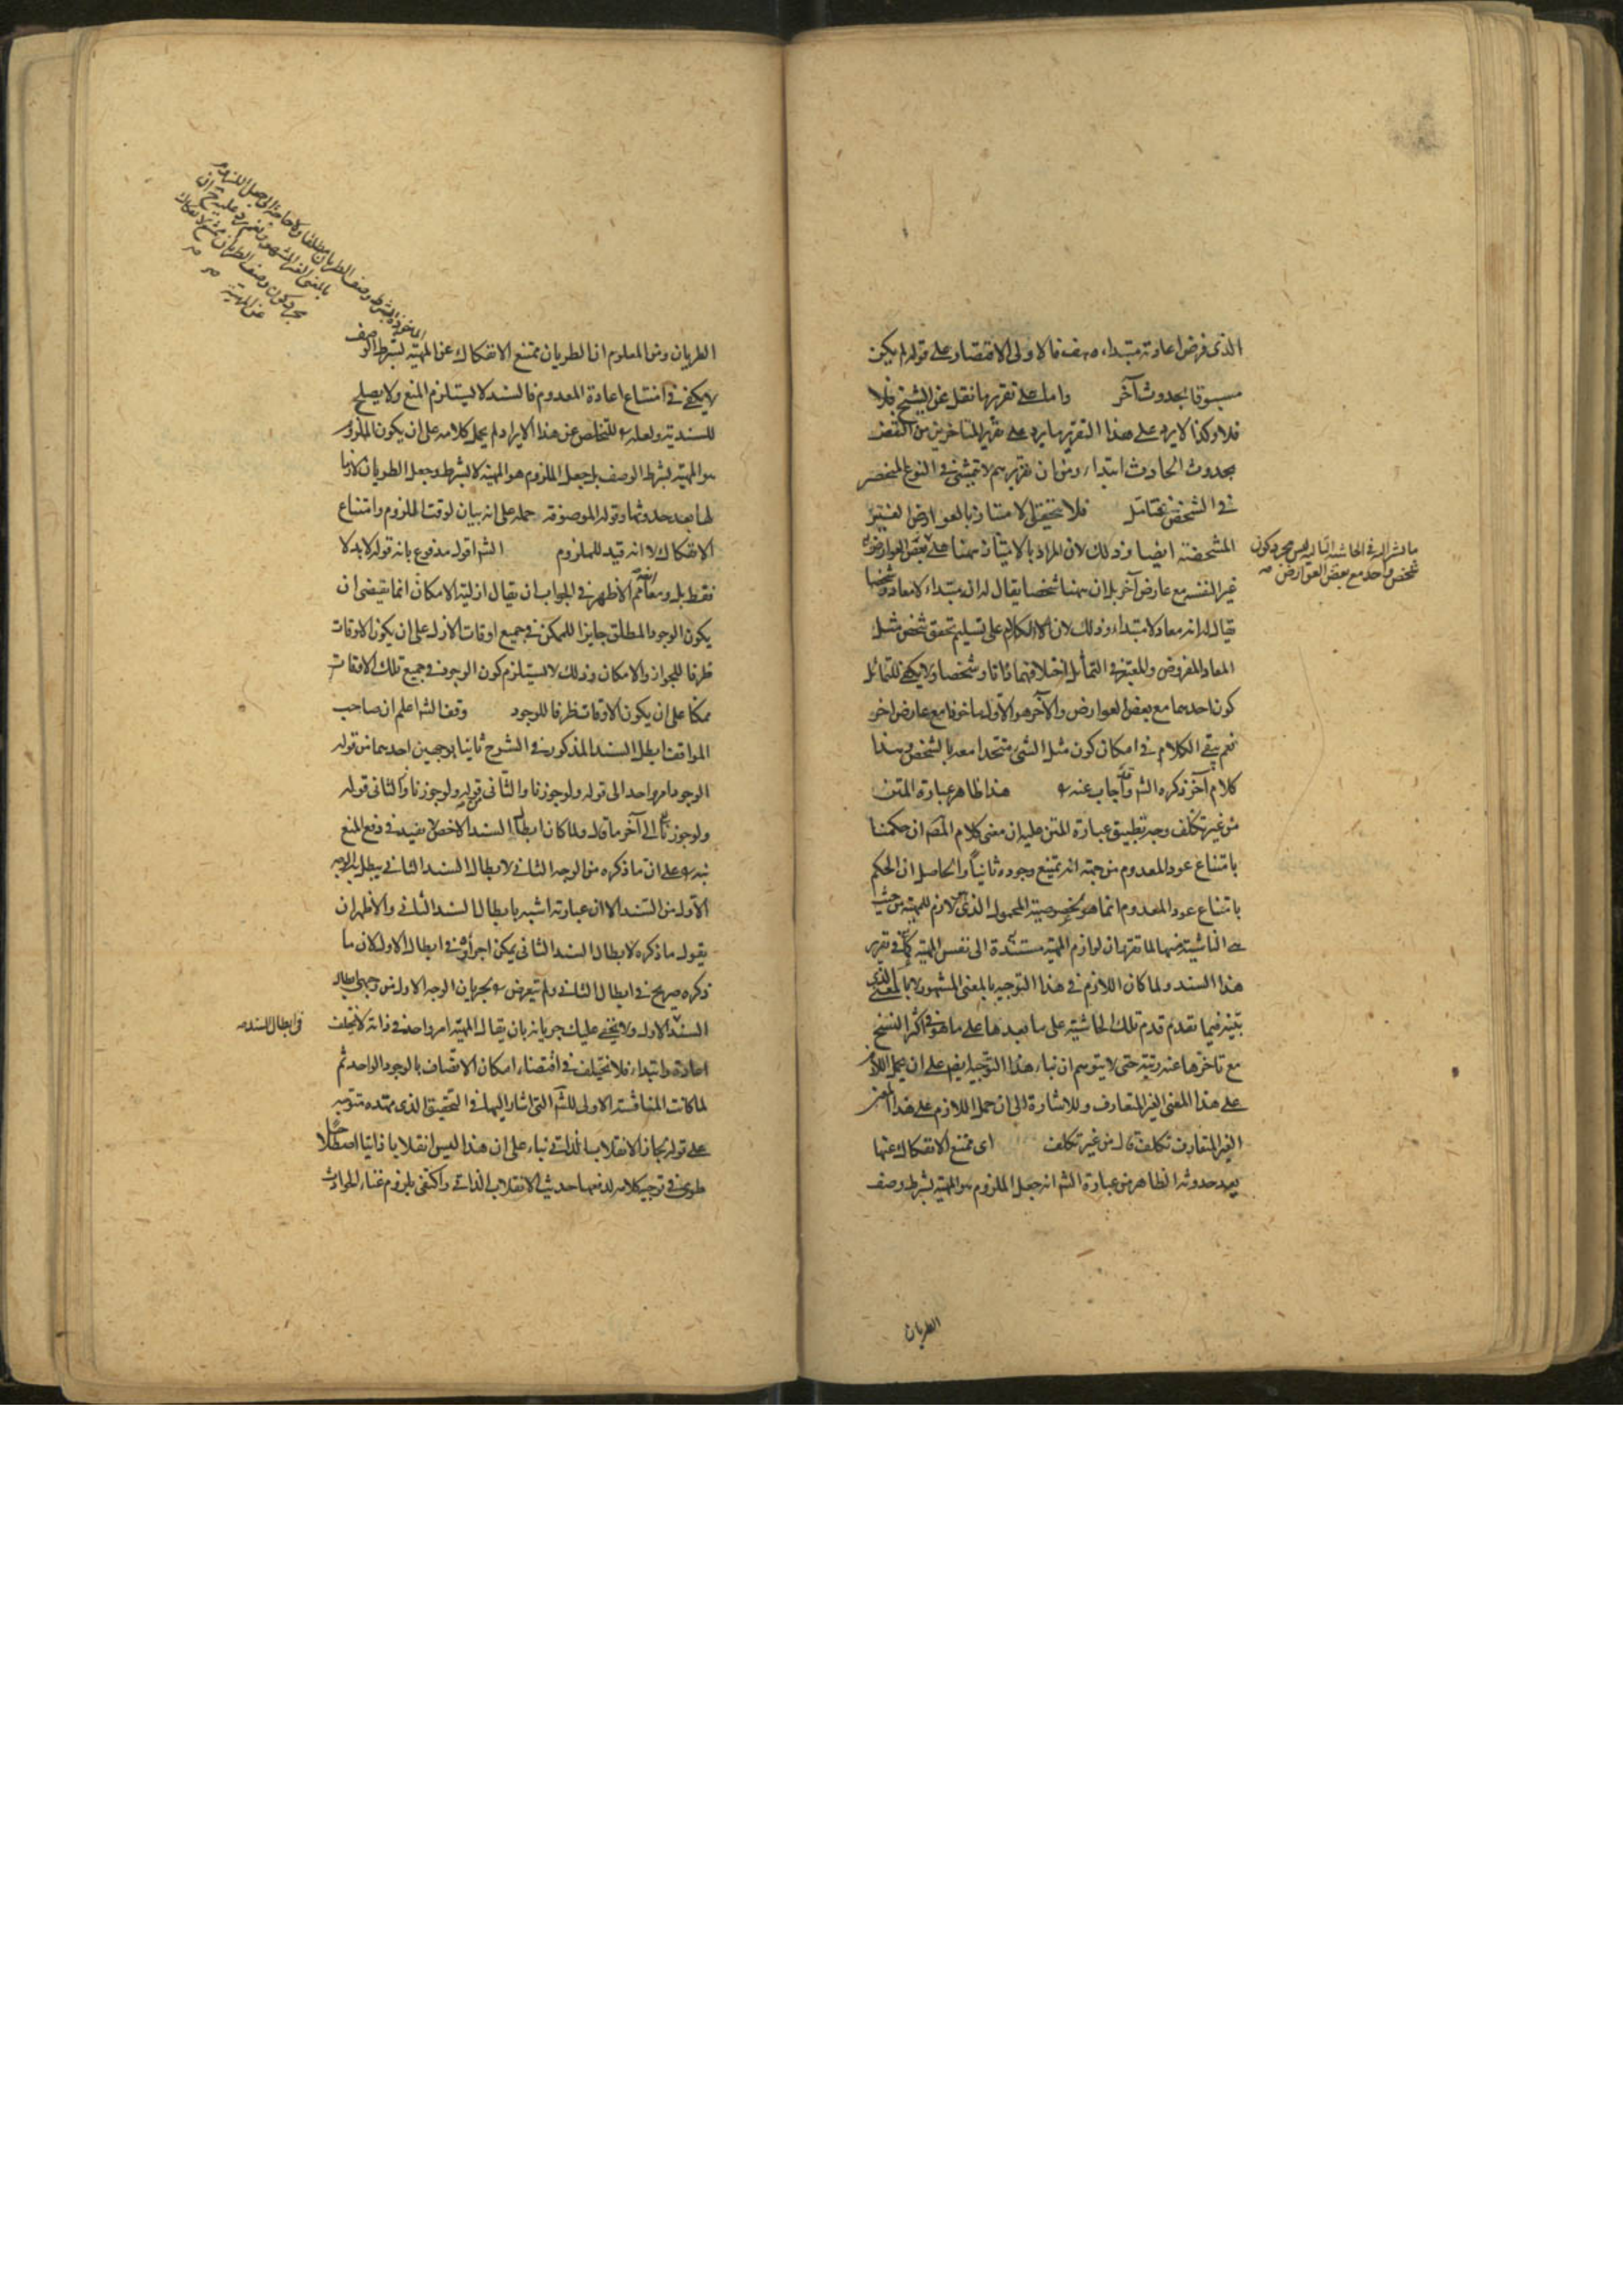 الذى فرض اعادته مبتداء هف فالاولى الاقتصار على قوله لم يكن
مسبوقا بحدوث آخر واما على تقريرها نقل عن الشيخ فلا
فلا وكذا لا يرد على هذا التقرير ما يرد على تقرير المتأخرين من النقض
بحدوث الحادث ابتداء ومن ان تقريرهم لا يتمشى فى النوع المنحصر
فى الشخص فتامل فلا يتحقق الامتياز بالعوارض الغير
المشخصة ايضا وذلك لان المراد بالامتياز ههنا على بعض العوارض
غير النفسه مع عارض آخر بل ان ههنا شخصا يقال له ان مبتداء لا معاد وشخصا
يقال له انه معاد لا مبتداء وذلك لان الكلام على تسليم تحقق شخص مثل
المعاد المفروض والمعتبر فى التماثل اختلافهما ذاتا وشخصا ولا يكفى للتماثل
كون احدهما مع بعض العوارض والآخر هو الأول ماخوذا مع عارض اخر
نعم بقى الكلام فى امكان كون مثل الشى متحدا معه بالشخص وهذا
كلام آخر ذكره الشم واجاب عنه هذا ظاهر عبارة المتن
من غير تكلف وجه تطبيق عبارة المتن عليه ان معنى كلام المصم ان حكمنا
بامتناع عود المعدوم من جهة انه يمتنع وجوده ثانيا والحاصل ان الحكم
بامتناع عود المعدوم انما هو لخصوصية المحمول الذى لازم للمهية من حيث
هى الناشية منها لما تقرر ان لوازم المهية مستندة الى نفس المهية كما فى تقرير
هذا السند ولما كان اللازم فى هذا التوجيه بالمعنى المشهور لا بالمعنى الذى
بينه فيما تقدم قدم تلك الحاشية على ما بعدها على ما هو فى اكثر النسخ
مع تاخرها عنه رتبة حتى لا يتوهم ان بناء هذا التوجيه ايضم على ان يحمل اللازم
على هذا المعنى الغير المتعارف وللاشارة الى ان حمل اللازم على هذا المعنى
الغير المتعارف تكلف قال من غير تكلف اى ممتنع الانفكاك عنها
بعد حدوثه الظاهر من عبارة الشم انه جعل الملزوم هو المهية بشرط وصف
شخص واحد مع بعض العوارض
الطريان
الطريان ومن المعلوم ان الطريان ممتنع الانفكاك عن المهية بشرط الوصف
لا يكفى فى امتناع اعادة المعدوم فالسند لا يستلزم المنع ولا يصلح
للسندية ولعله للتخلص عن هذا الايراد لم يحمل كلامه على ان يكون الملزوم
هو المهية بشرط الوصف بل جعل الملزوم هو المهية لا بشرط وجعل الطريان لازما
لها بعد حدوثها وقوله الموصوفة حمله على انه بيان لوقت الملزوم وامتناع
الانفكاك لا انه قيد للملزوم الشم اقول مدفوع بانه قوله لابد لا
فقط بل ومعا الاظهر فى الجواب ان يقال ازلية الامكان انما تقتضى ان
يكون الوجود المطلق جايزا للممكن فى جميع اوقات الازل على ان يكون الاوقات
ظرفا للجواز والامكان وذلك لا يستلزم كون الوجود فى جميع تلك الاوقات
ممكنا على ان يكون الاوقات ظرفا للوجود وقف الشم اعلم ان صاحب
المواقف ابطل السند المذكور فى الشرح ثانيا بوجهين احدهما من قوله
الوجود امر واحد الى قوله ولو جوزنا والثانى قوله ولو جوزنا والثانى قوله
ولو جوزنا الى آخر ما قال ولما كان ابطال السند الاخص لا يفيد فى دفع المنع
نبه على ان ما ذكره من الوجه الثانى لابطال السند الثانى يبطل به الوجه
الاول من السند الا ان عبارته اشبه بابطال السند الثانى والاظهر ان
يقول ما ذكره لابطال السند الثانى يمكن اجراؤه فى ابطال الاول لان ما
ذكره صريح فى ابطال الثانى ولم يتعرض بجريان الوجه الاول من وجهى ابطال
السند الاول ولا يخفى عليك جريانه بان يقال المهية امر واحد فى ذاته لا يختلف
اعادة وابتداء فلا تختلف فى اقتضاء امكان الاتصاف بالوجود الواحد ثم
لما كانت المناقشة الاولى للشم التى اشار اليها فى التحقيق الذى مهده متوجه
على قوله بجاز الانقلاب الذاتى بناء على ان هذا ليس انقلابا ذاتيا اصطلاحا
طوى فى توجيه كلامه لدفعها حديث الانقلاب الذاتى واكتفى بلزوم غناء الحوادث
فى ابطال السند